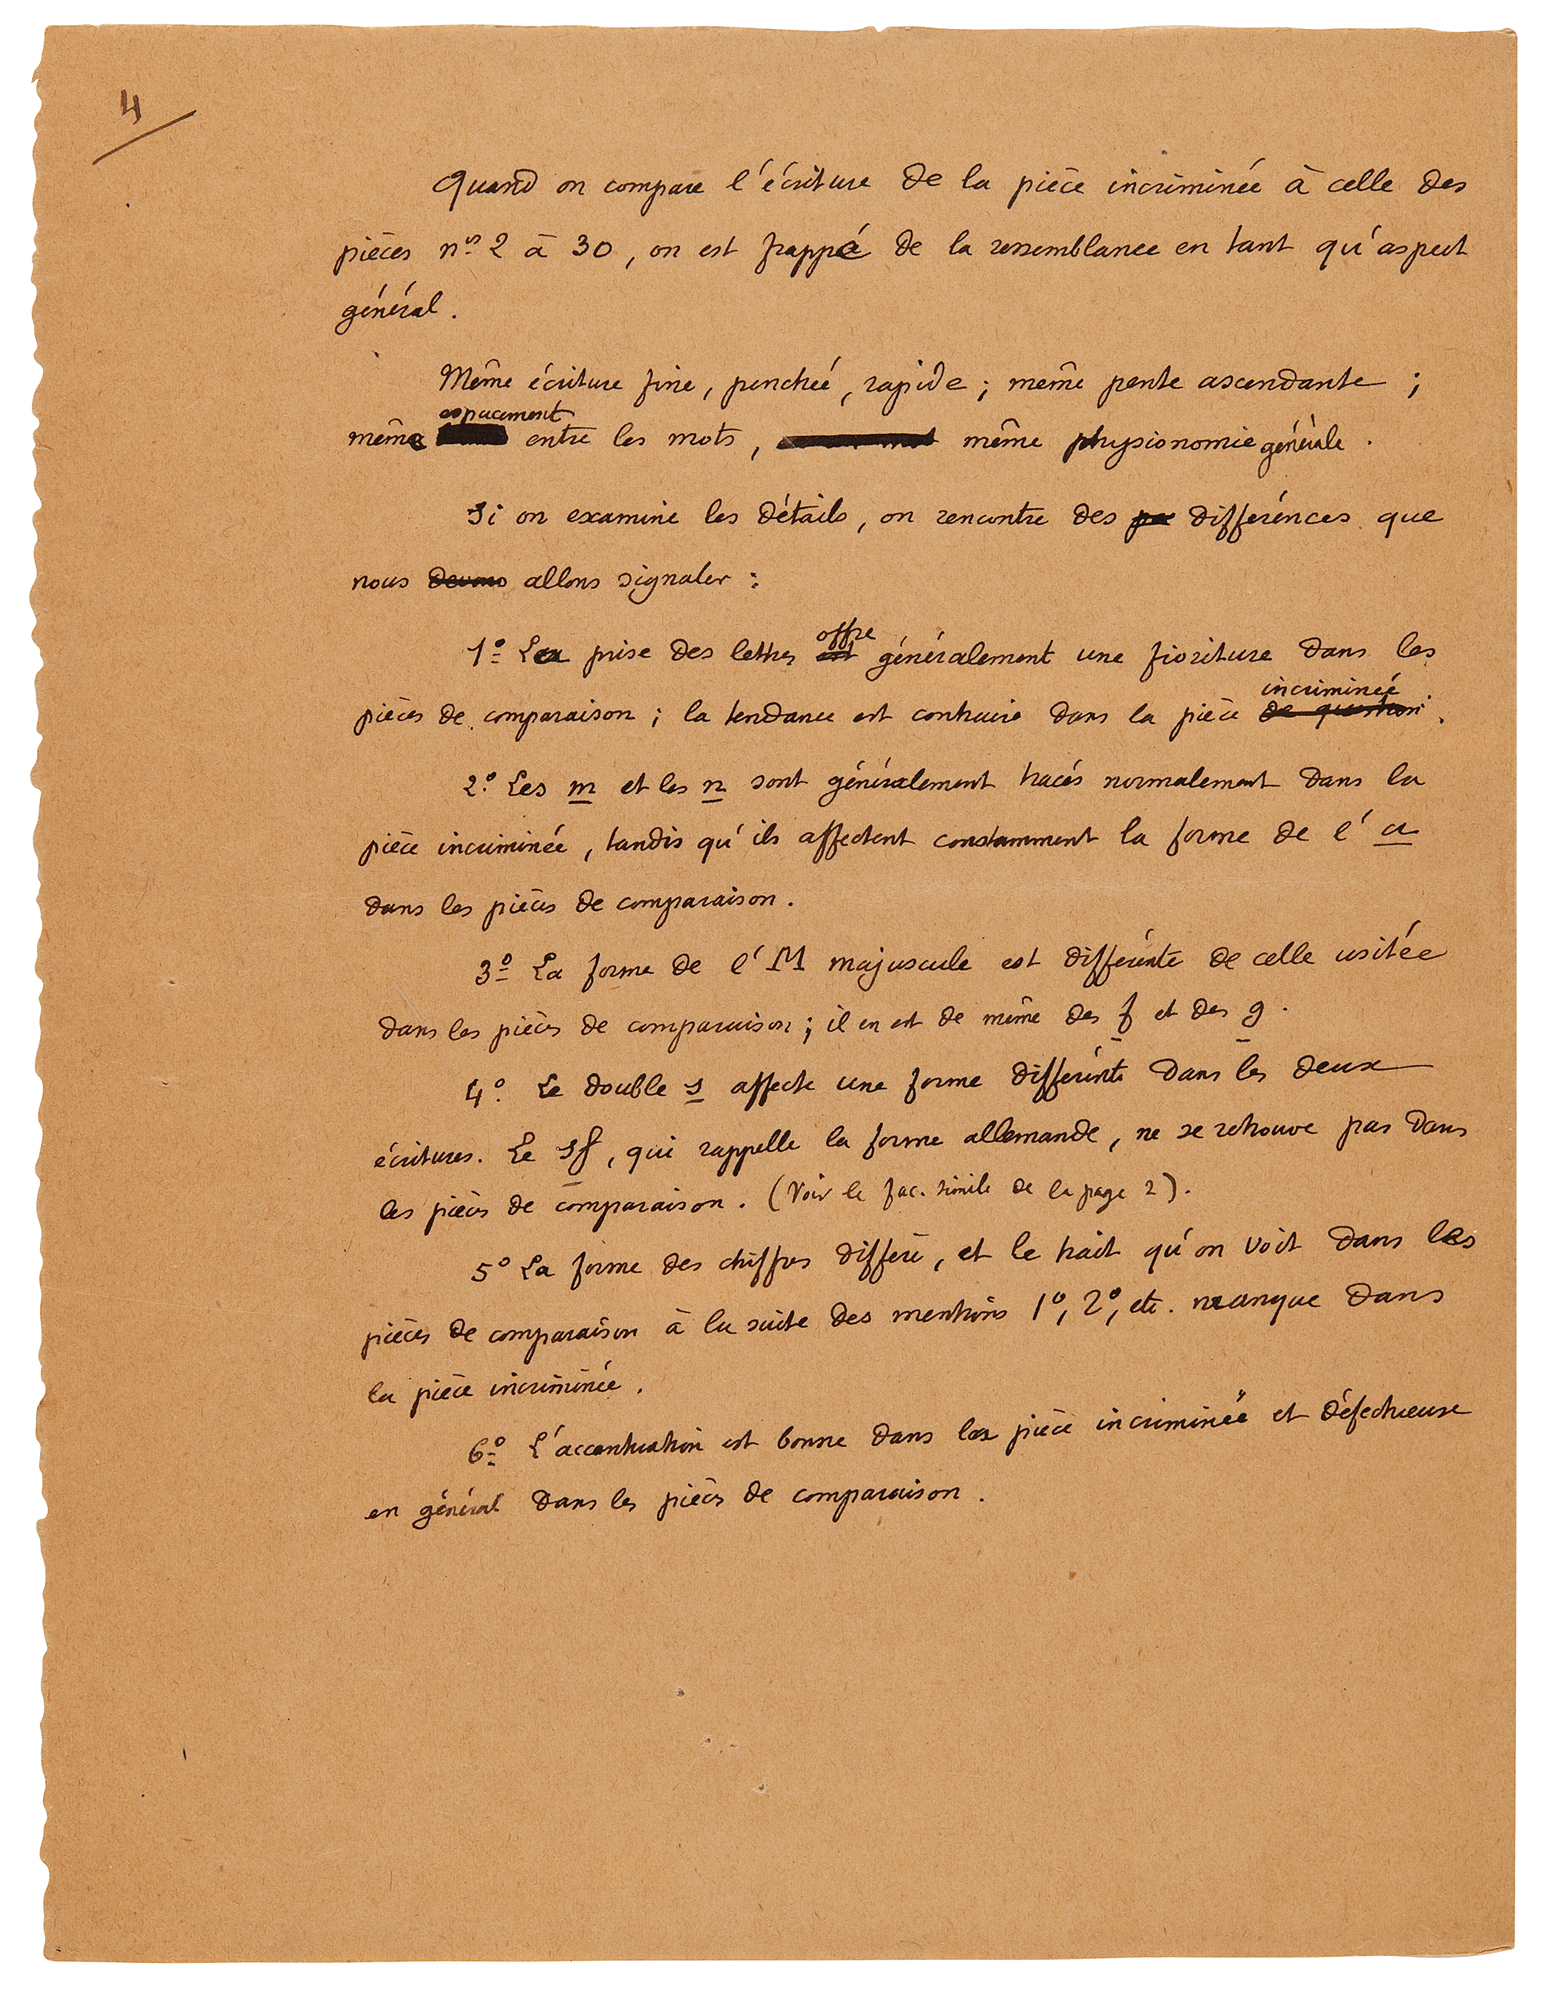 4
Quand on compare l'écriture de la pièce incriminée à celle des
pièces nos 2 à 30, on est frappé de la ressemblance en tant qu'aspect
général.
Même écriture fine, penchée, rapide ; même pente ascendante ;
espacement
même entre les mots, même physionomie générale.
Si on examine les détails, on rencontre des différences que
nous devons allons signaler :
offre
1º La prise des lettres est généralement une fioriture dans les
incriminée
pièces de comparaison ; la tendance est contraire dans la pièce de question.
2º Les m et les n sont généralement tracés normalement dans la
pièce incriminée, tandis qu'ils affectent constamment la forme de l'u
dans les pièces de comparaison.
3º La forme de l'M majuscule est différente de celle usitée
dans les pièces de comparaison ; il en est de même des f et des g.
4º Le double s affecte une forme différente dans les deux
écritures. Le sf, qui rappelle la forme allemande, ne se retrouve pas dans
les pièces de comparaison. (Voir le fac. simile de la page 2).
5º La forme des chiffres diffère, et le trait qu'on voit dans les
pièces de comparaison à la suite des mentions 1º, 2º, etc. manque dans
la pièce incriminée.
6º L'accentuation est bonne dans la pièce incriminée et défectueuse
en général dans les pièces de comparaison.